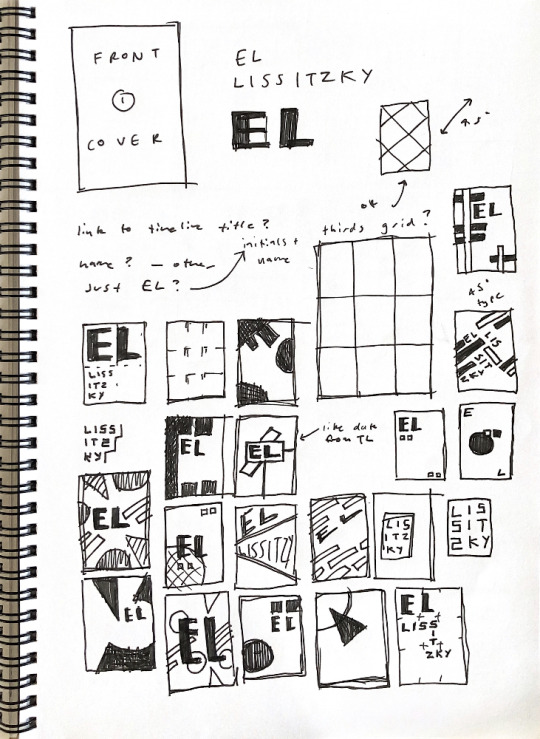 FRONT
1
COVER
EL
LISSITZKY
EL
45°
or
link to timeline title?
initials +
name
name? — other
Just EL?
thirds grid?
EL
45°
type
EL
LISS
ITZ
KY
EL
LIS
SIT
ZKY
LISS
ITZ
KY
EL
EL
like date
from TL
EL
E
L
EL
EL
EL
LISSITZY
EL
LIS
ITZ
KY
LIS
SIT
ZKY
EL
EL
EL
EL
LISS
I
T
ZKY